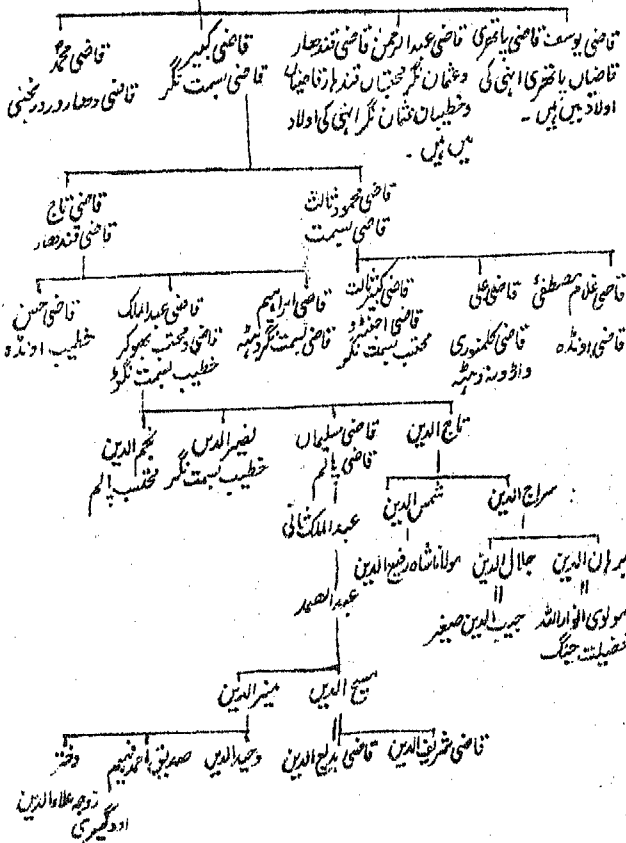 قاضی یوسف قاضی پاتھری
قاضیاں پاتھری انہی کی
اولاد میں ہیں ۔
قاضی عبدالرحمن قاضی قندھار
و عثمان نگر محتسبان قندھار قاضیان
و خطیبان عثمان نگر انہی کی اولاد
میں ہیں ۔
قاضی کبیر
قاضی بسمت نگر
قاضی محمد
قاضی دھارور
قاضی محمود ثالث
قاضی بسمت
قاضی تاج
قاضی قندھار
قاضی غلام مصطفیٰ
قاضی اونڈہ
قاضی علی
قاضی کلمنوری
قاضی کبیر ثالث
محتسب بسمت نگر
قاضی ابراہیم
قاضی بسمت نگر
قاضی عبدالملک
قاضی و محتسب بھوکر
خطیب بسمت نگر
قاضی حسن
خطیب اونڈہ
تاج الدین
قاضی سلیمان
قاضی پالم
نصیر الدین
خطیب بسمت نگر
نجم الدین
محتسب پالم
سراج الدین
شمس الدین
عبدالملک ثانی
برہان الدین
جلال الدین
مولانا شاہ رفیع الدین
عبدالصمد
مولوی انوار اللہ
فضیلت جنگ
حبیب الدین صغیر
مسیح الدین
منیر الدین
قاضی شریف الدین
قاضی بدیع الدین
وحید الدین
صدیق احمد فہیم
دختر
زوجہ علاء الدین
اودگیری